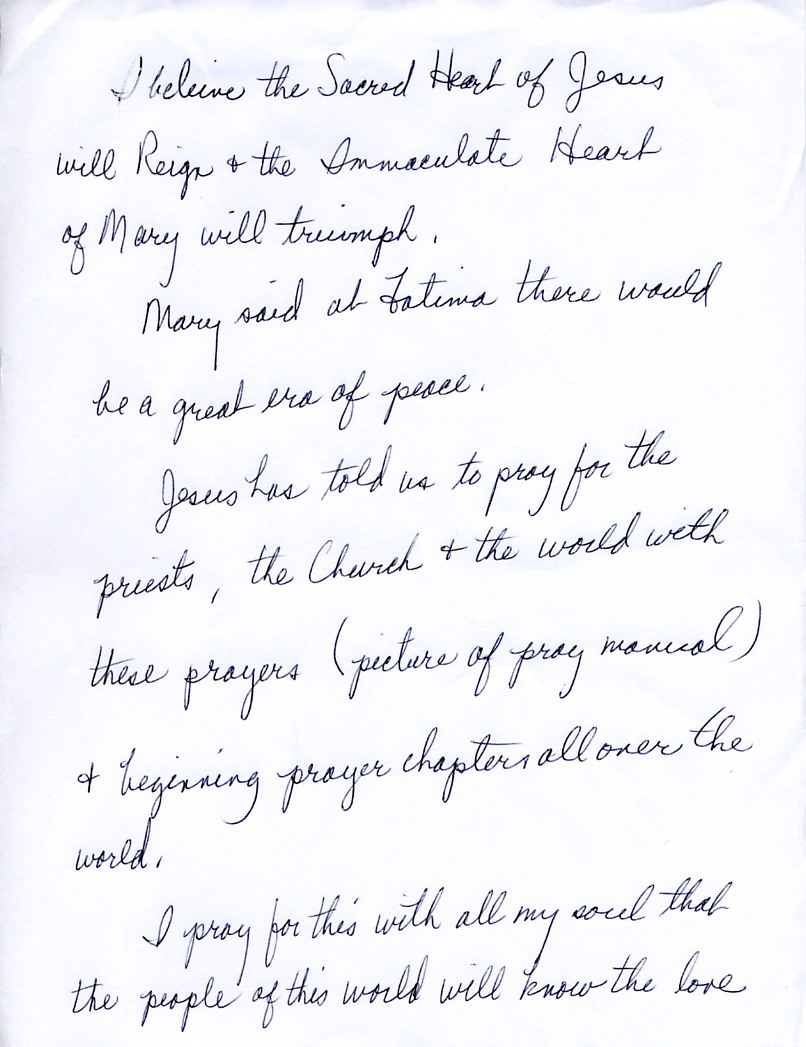 I beleive the Sacred Heart of Jesus
will Reign + the Immaculate Heart
of Mary will triumph.
Mary said at Fatima there would
be a great era of peace.
Jesus has told us to pray for the
priests, the Church + the world with
these prayers (picture of pray manual)
+ beginning prayer chapters all over the
world.
I pray for this with all my soul that
the people of this world will know the love